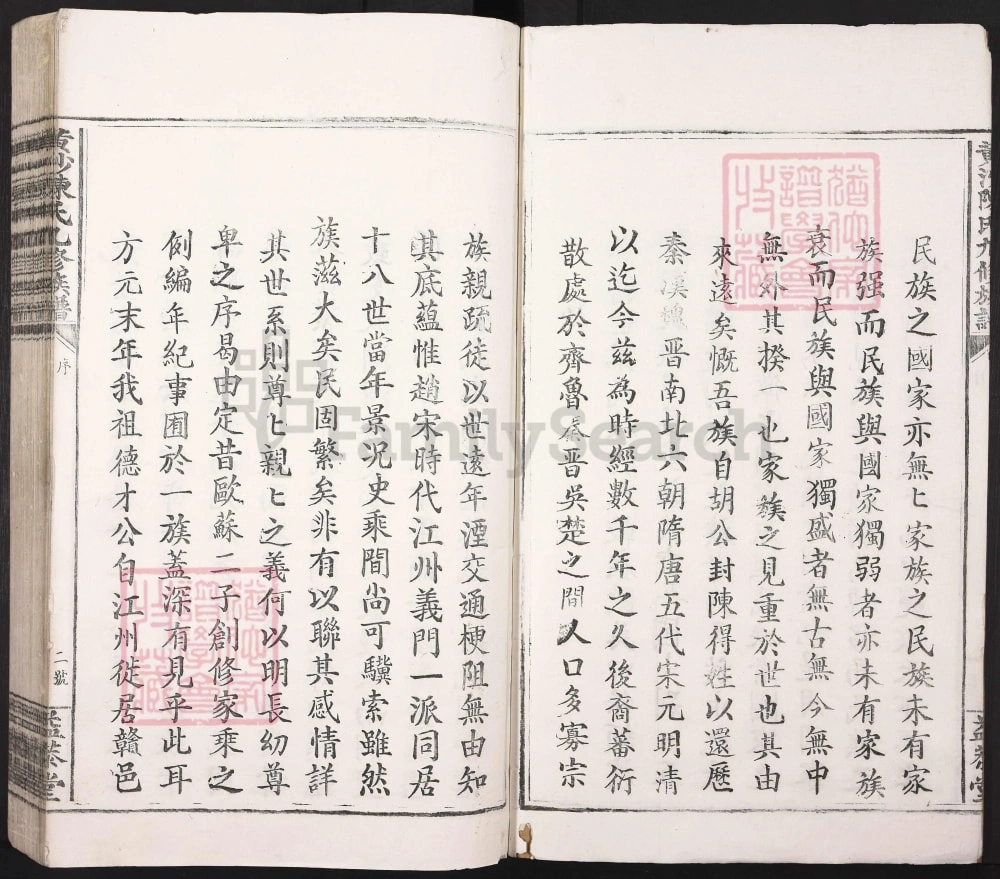 民族之國家亦無亡家族之民族未有家
族强而民族與國家獨弱者亦未有家族
衰而民族與國家獨盛者無古無今無中
無外其揆一也家族之見重於世也其由
來遠矣慨吾族自胡公封陳得姓以還歷
秦漢魏晋南北六朝隋唐五代宋元明清
以迄今茲為時經數千年之久後裔蕃衍
散處於齊魯秦晋吳楚之間人口多寡宗
族親疏徒以世遠年湮交通梗阻無由知
其底蘊惟趙宋時代江州義門一派同居
十八世當年景況史乘間尚可驥索雖然
族滋大矣民固繁矣非有以聯其感情詳
其世系則尊尊親親之義何以明長幼尊
卑之序曷由定昔歐蘇二子創修家乘之
例編年紀事囿於一族蓋深有見乎此耳
方元末年我祖德才公自江州徙居贛邑
黄沙陳氏九修族譜
序
二號
益恭堂
FamilySearch